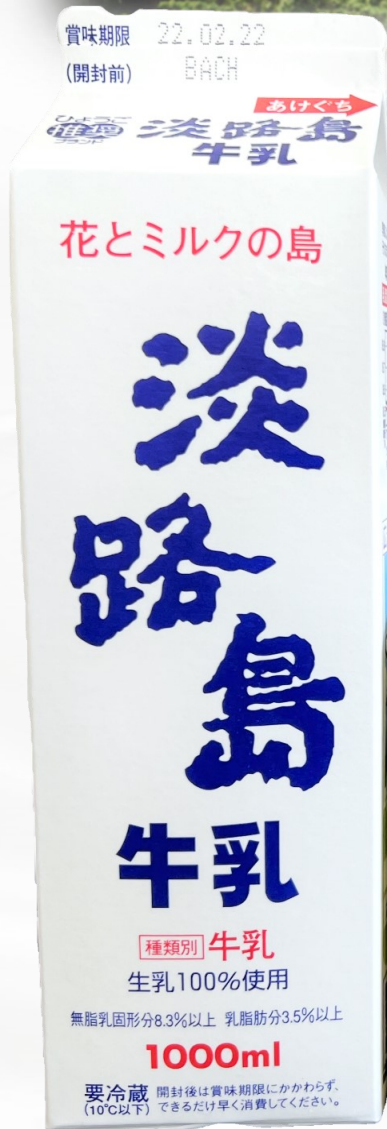 賞味期限 22.02.22
(開封前) BACH
あけぐち
ひょうご
推奨
ブランド
淡路島
牛乳
花とミルクの島
淡
路
島
牛乳
種類別 牛乳
生乳100%使用
無脂乳固形分8.3%以上 乳脂肪分3.5%以上
1000ml
要冷蔵 開封後は賞味期限にかかわらず、
(10℃以下) できるだけ早く消費してください。